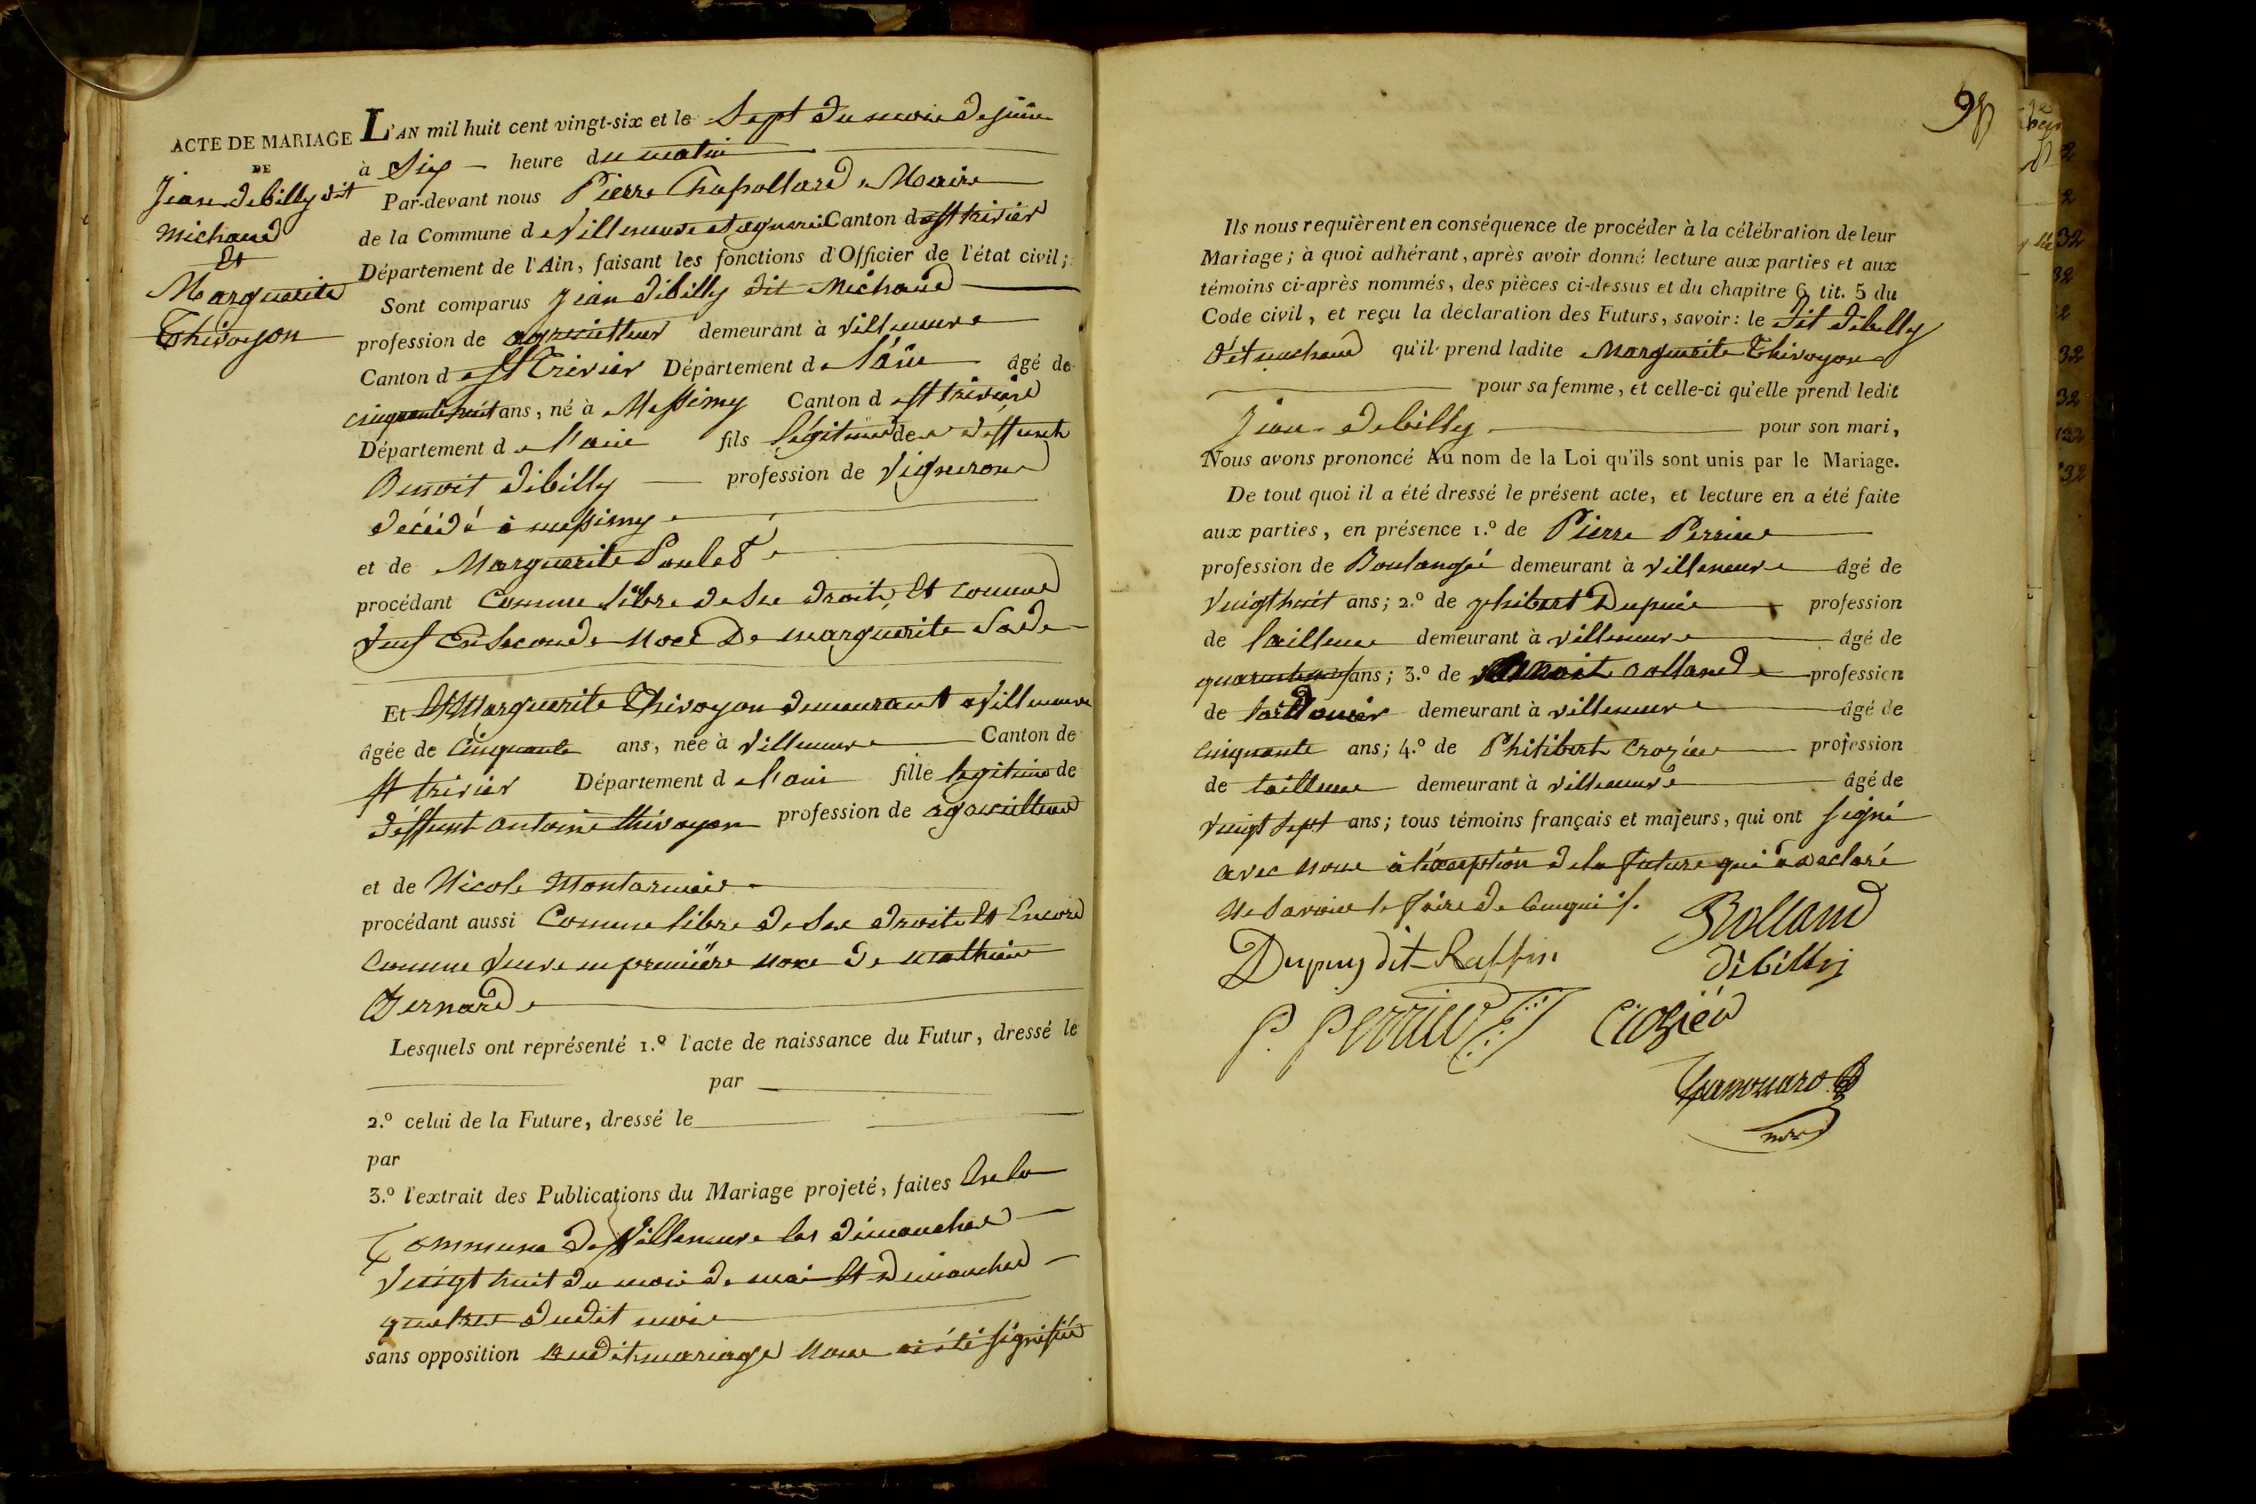 ACTE DE MARIAGE
DE
Jean debilly dit
michaud
Et
Marguerite
Thivoyon
L'AN mil huit cent vingt-six et le Sept du mois de juin
à Six heure du matin
Par-devant nous Pierre Chapollard Maire
de la Commune de Villeneuve et agnereir Canton de st trivier
Département de l'Ain, faisant les fonctions d'Officier de l'état civil;
Sont comparus Jean dibilly dit Michaud
profession de agriculteur demeurant à villeneuve
Canton de St Trivier Département de l'ain âgé de
cinquante huit ans, né à Messimy Canton de st trivier
Département de l'ain fils légitime de deffunt
Benoit dibilly profession de vigneron
décédé à messimy
et de Marguerite Poulet
procédant comme libre de Ses droits, Et comme
veuf En Seconde Noce De marguerite
Et Marguerite Thivoyon demeurant a Villeneuve
âgée de Cinquante ans, née à Villeneuve Canton de
st trivier Département de l'ain fille legitime de
deffunt antoine thivoyon profession de agriculteur
et de Nicole Montarnier
procédant aussi Comme libre de Ses droits Et Encore
Comme Veuve en premiere noce de mathieu
Bernard
Lesquels ont représenté 1.º l'acte de naissance du Futur, dressé le
par
2.º celui de la Future, dressé le
par
3.º l'extrait des Publications du Mariage projeté, faites En la
Commune de Villeneuve les dimanches
Vingt huit du mois de mai Et dimanches
quatre dudit mois
sans opposition audit mariage nous ai été signifiée
Ils nous requièrent en conséquence de procéder à la célébration de leur
Mariage; à quoi adhérant, après avoir donné lecture aux parties et aux
témoins ci-après nommés, des pièces ci-dessus et du chapitre 6, tit. 5 du
Code civil, et reçu la déclaration des Futurs, savoir: le dit dibilly
dit michaud qu'il prend ladite Marguerite Thivoyon
pour sa femme, et celle-ci qu'elle prend ledit
Jean debilly pour son mari,
Nous avons prononcé Au nom de la Loi qu'ils sont unis par le Mariage.
De tout quoi il a été dressé le présent acte, et lecture en a été faite
aux parties, en présence 1.º de Pierre Perrier
profession de Boulangé demeurant à villeneuve âgé de
vingt huit ans; 2.º de philibert Dupuie profession
de tailleur demeurant à villeneuve âgé de
ans; 3.º de Benoit Rolland profession
de demeurant à villeneuve âgé de
cinquante ans; 4.º de Philibert Crozier profession
de tailleur demeurant à villeneuve âgé de
vingt sept ans; tous témoins français et majeurs, qui ont signé
avec nous à l'éxception de la future qui a declaré
Ne Savoir le faire de
Rolland
Dupuy dit Raffin
dibilly
P. Perrier
Crozier
maire